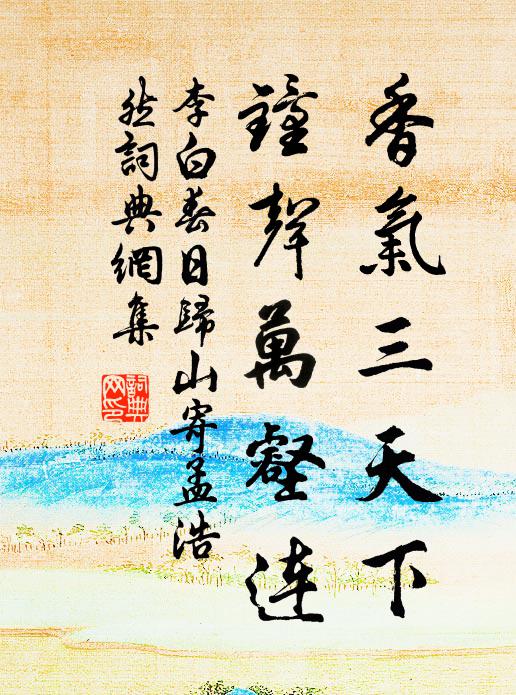 香氣三天下
鐘聲萬壑連
李白春日歸山寄孟浩
然詞典網集
詞典
网印